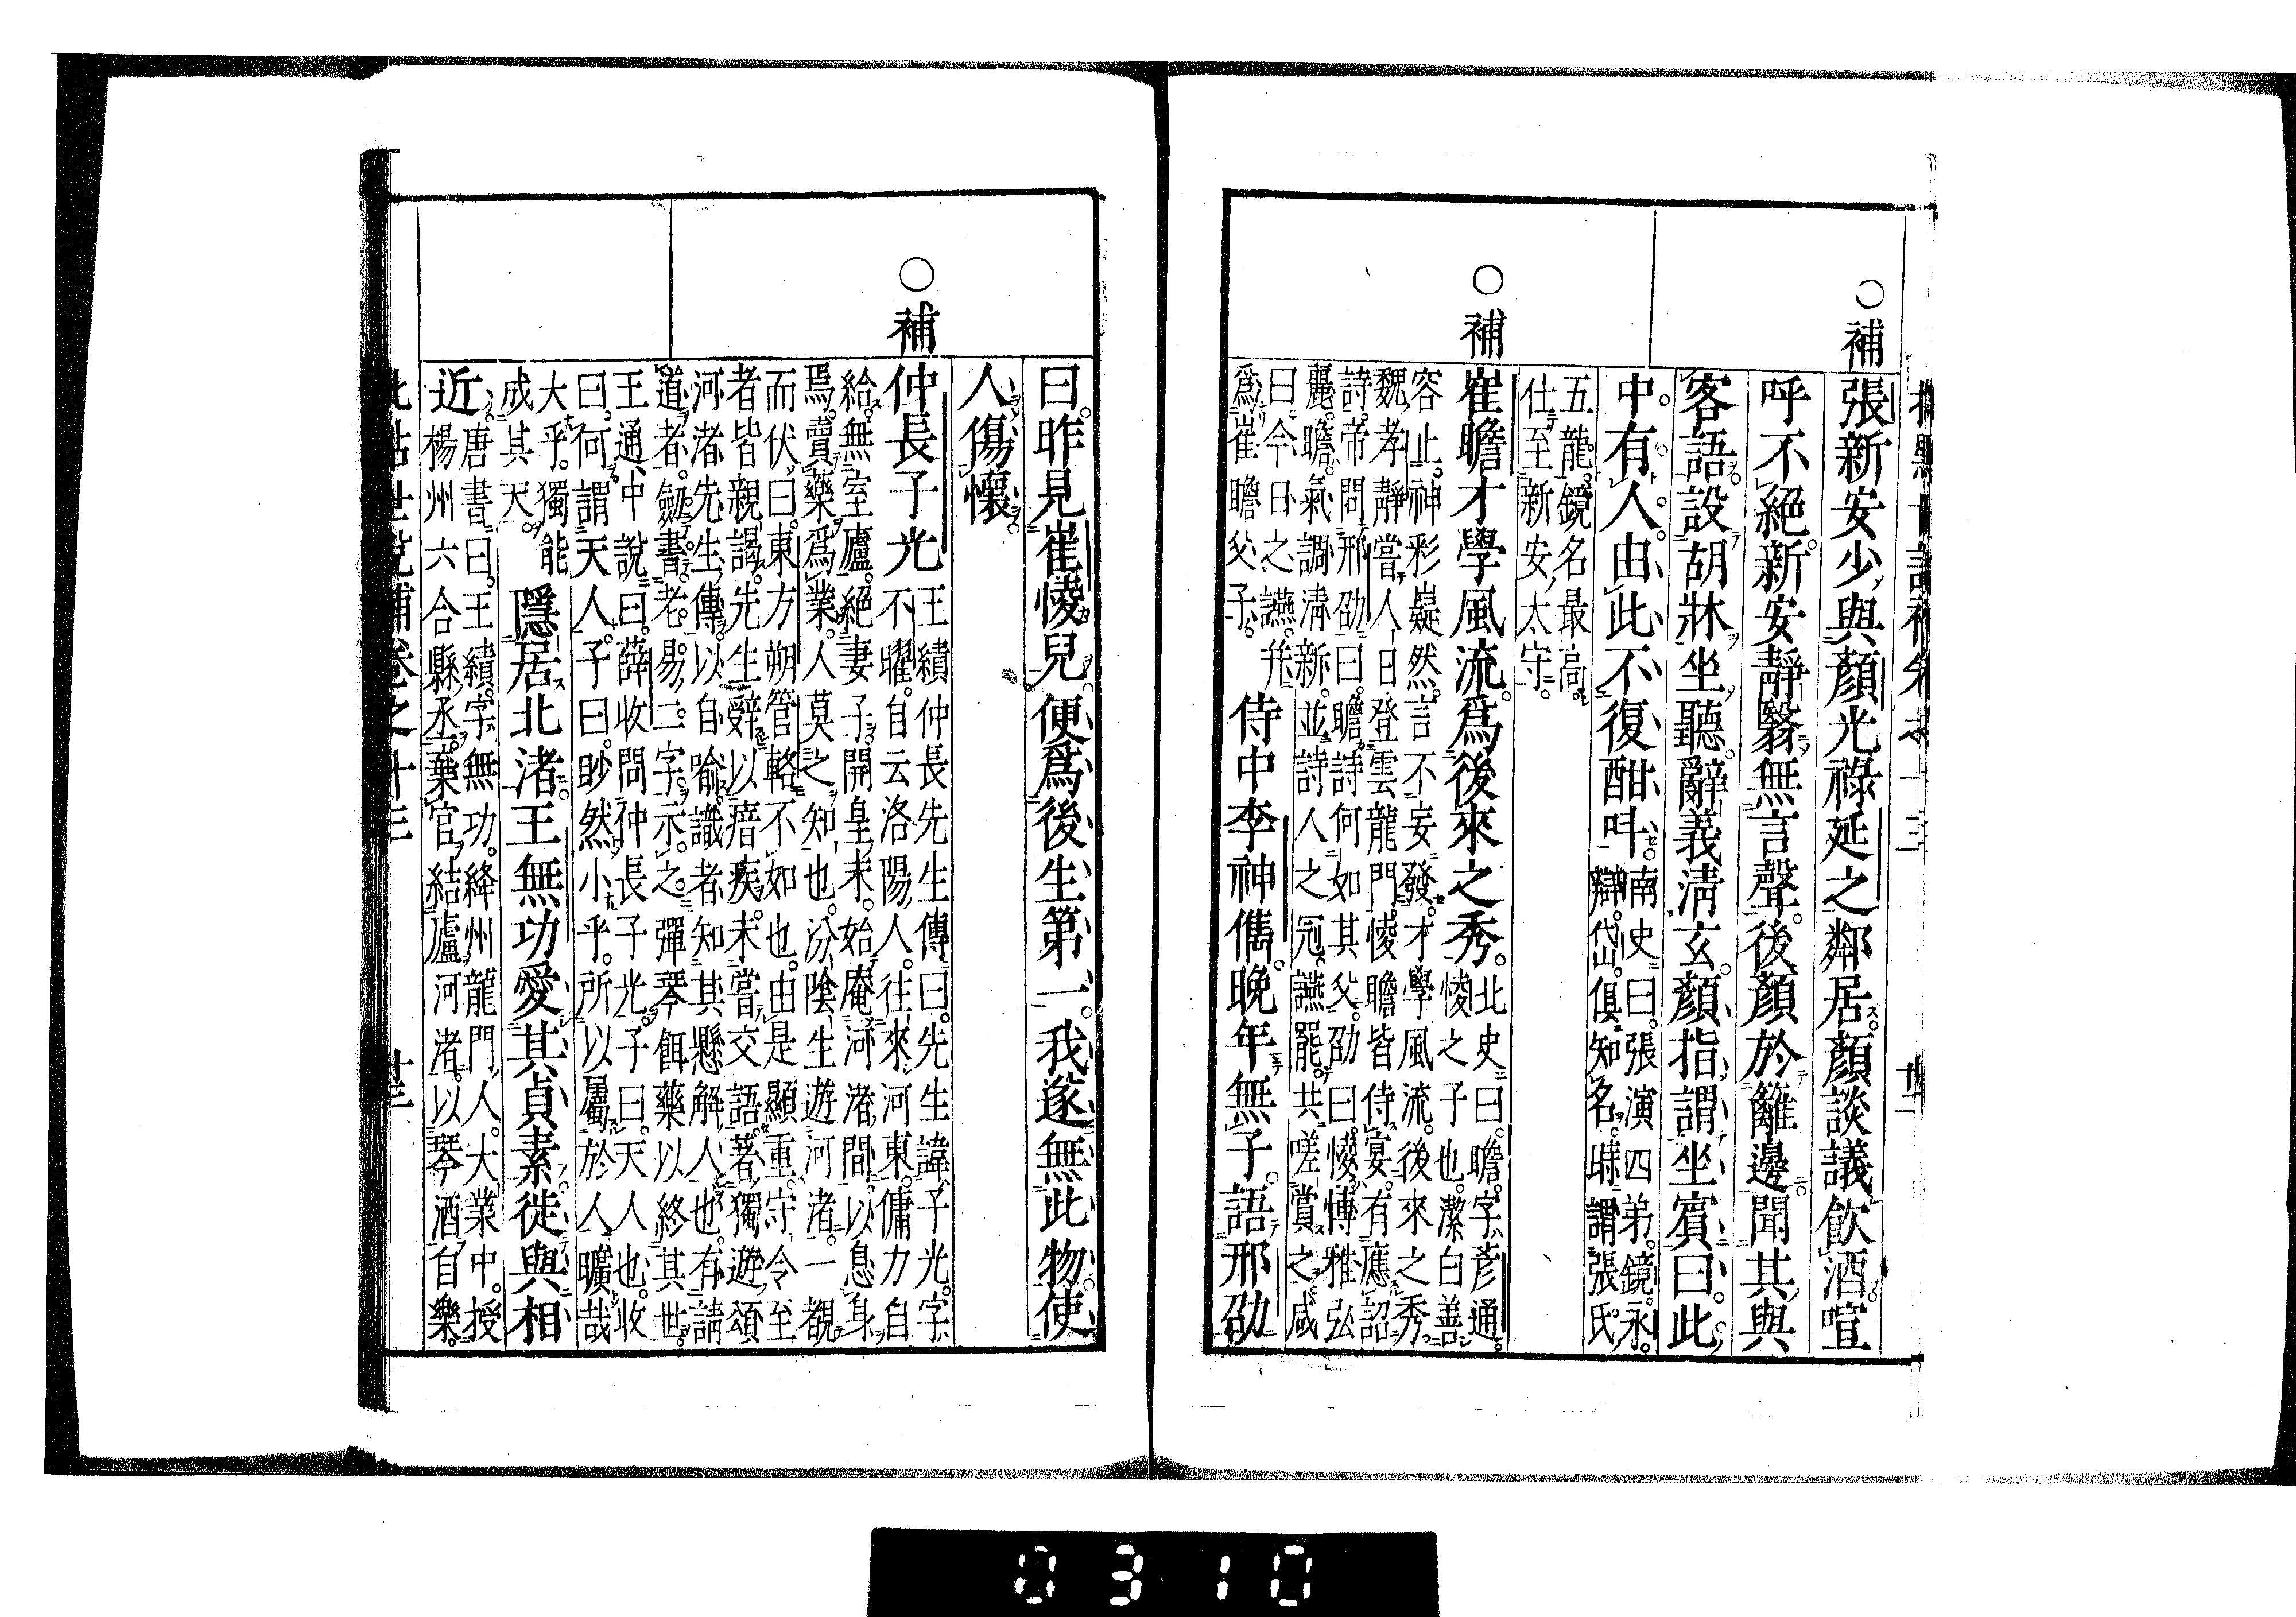 ○補
張新安少與顏光祿延之鄰居顏談議飲酒喧
呼不絕新安靜翳無言聲後顏於籬邊聞其與
客語設胡牀坐聽辭義淸玄顏指謂坐賓曰此
中有人由此不復酣叫
南史曰張演四弟鏡永
辯岱俱知名時謂張氏
五龍鏡名最高
仕至新安太守
○補
崔瞻才學風流爲後來之秀
北史曰瞻字彥通
㥄之子也潔白善
容止神彩嶷然言不妄發才學風流後來之秀
魏孝靜嘗人日登雲龍門㥄瞻皆侍宴有應詔
詩帝問邢劭曰瞻詩何如其父劭曰㥄博雅弘
麗瞻氣調淸新並詩人之冠讌罷共嗟賞之咸
曰今日之讌并
爲崔瞻父子
侍中李神儁晚年無子語邢劭
曰昨見崔㥄兒便爲後生第一我遂無此物使
人傷懷
○補
仲長子光
王績仲長先生傳曰先生諱子光字
不曜自云洛陽人往來河東傭力自
給無室廬絕妻子開皇末始庵河渚間以息身
焉賣藥爲業人莫之知也汾陰生遊河渚一覩
而伏曰東方朔管輅不如也由是顯重守令至
者皆親謁先生辭以瘖疾未嘗交語著獨遊頌
河渚先生傳以自喻識者知其懸解人也有請
道者劔書老易二字示之彈琴餌藥以終其世
王通中說曰薛收問仲長子光子曰天人也收
曰何謂天人子曰眇然小乎所以屬於人曠哉
大乎獨能
成其天
隱居北渚王無功愛其貞素徙與相
近
唐書曰王績字無功絳州龍門人大業中授
楊州六合縣丞棄官結廬河渚以琴酒自樂